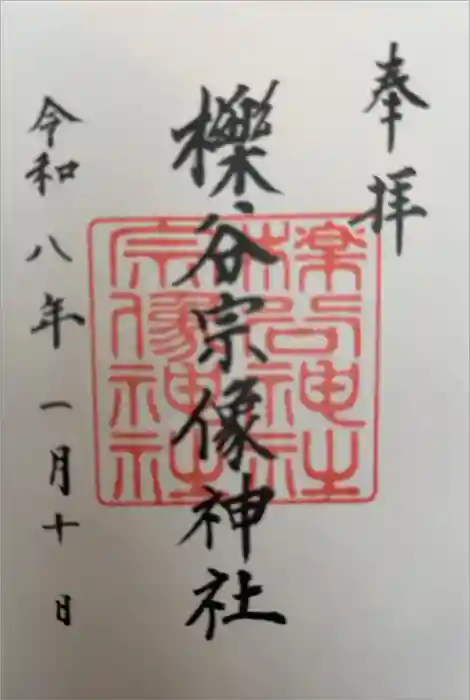 奉拝
櫟谷宗像神社
櫟谷神社
宗像神社
令和八年一月十日